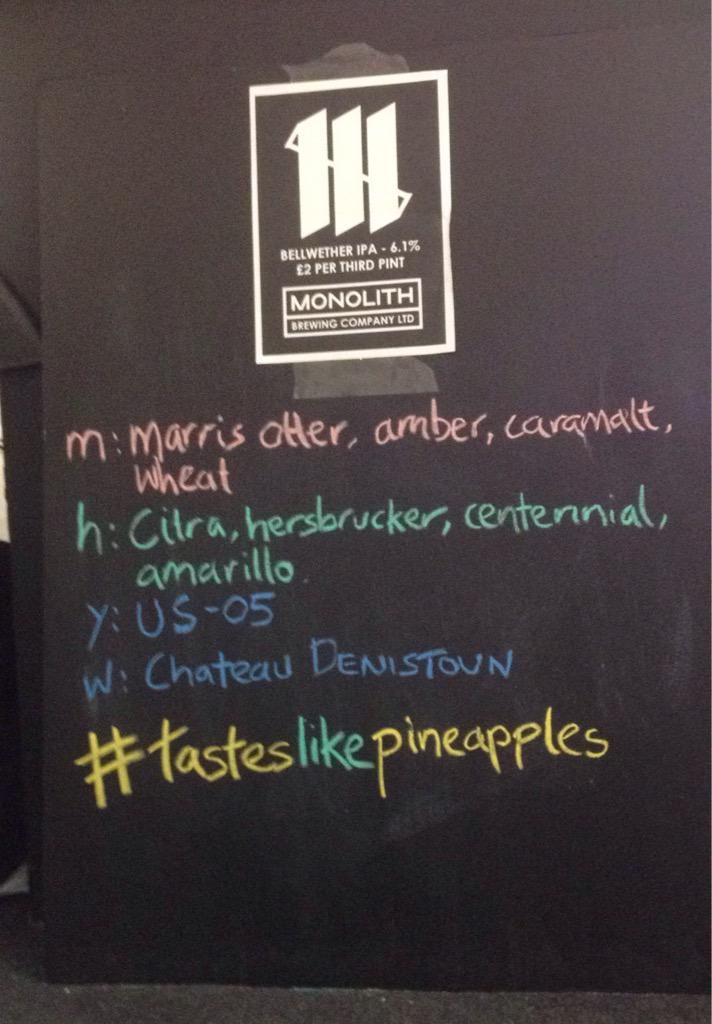 BELLWETHER IPA - 6.1%
£2 PER THIRD PINT
MONOLITH
BREWING COMPANY LTD
m: Marris otter, amber, caramalt,
wheat
h: Citra, hersbrucker, centennial,
amarillo.
y: US-05
W: Chateau DENISTOUN
#tasteslikepineapples